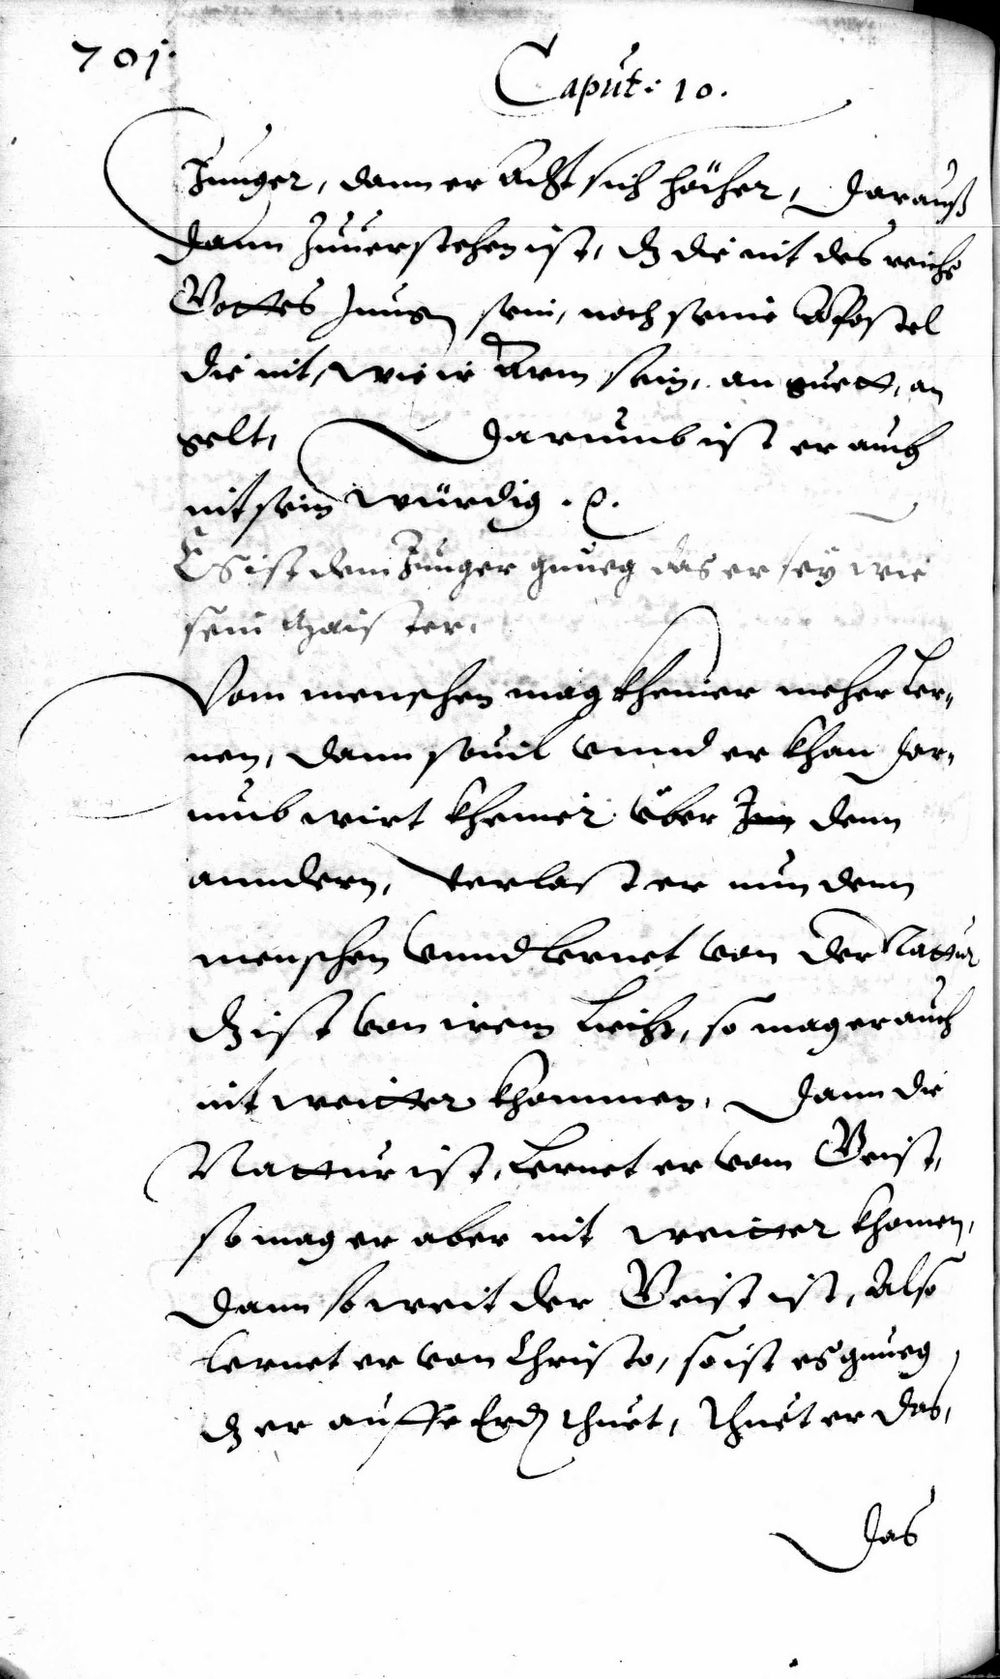 701.
Caput: 10.
Junger, dann er acht sich höcher, Darauß
dann zuuerstehen ist, dz die nit des reichs
Gottes Junger sein, noch seine Apostel
die nit, wie ir Arm sein, an guett, an
gelt, Darumb ist er auch
nit sein würdig.
Es ist dem Junger gnueg das er sey wie
sein Maister.
Vom menschen mag kheiner meher Ler-
nen, dann souil vnnd er khan Dar-
umb wirt kheiner über denn
anndern, verlast er nun denn
menschen vnnd lernet von der Nattur
dz ist von irem Liecht, so mag er auch
nit weitter khommen, Dann die
Nattur ist, Lernet er vom Geist,
so mag er aber nit weitter khomen,
Dann so weit der Geist ist, Also
lernet er von Christo, so ist es gnueg
dz er auff Erdt thuet, Thuet er das,
Das